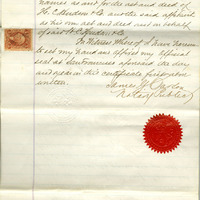 names as and for the act and deed of
H. C. & Co and the said
as his own act and deed and in behalf
of said H. C. & Co.
In Witness Whereof I have hereun
to set my hand and affixed my official
seal at San Francisco aforesaid the day
and year in this certificate first above
written.
James
Notary Public